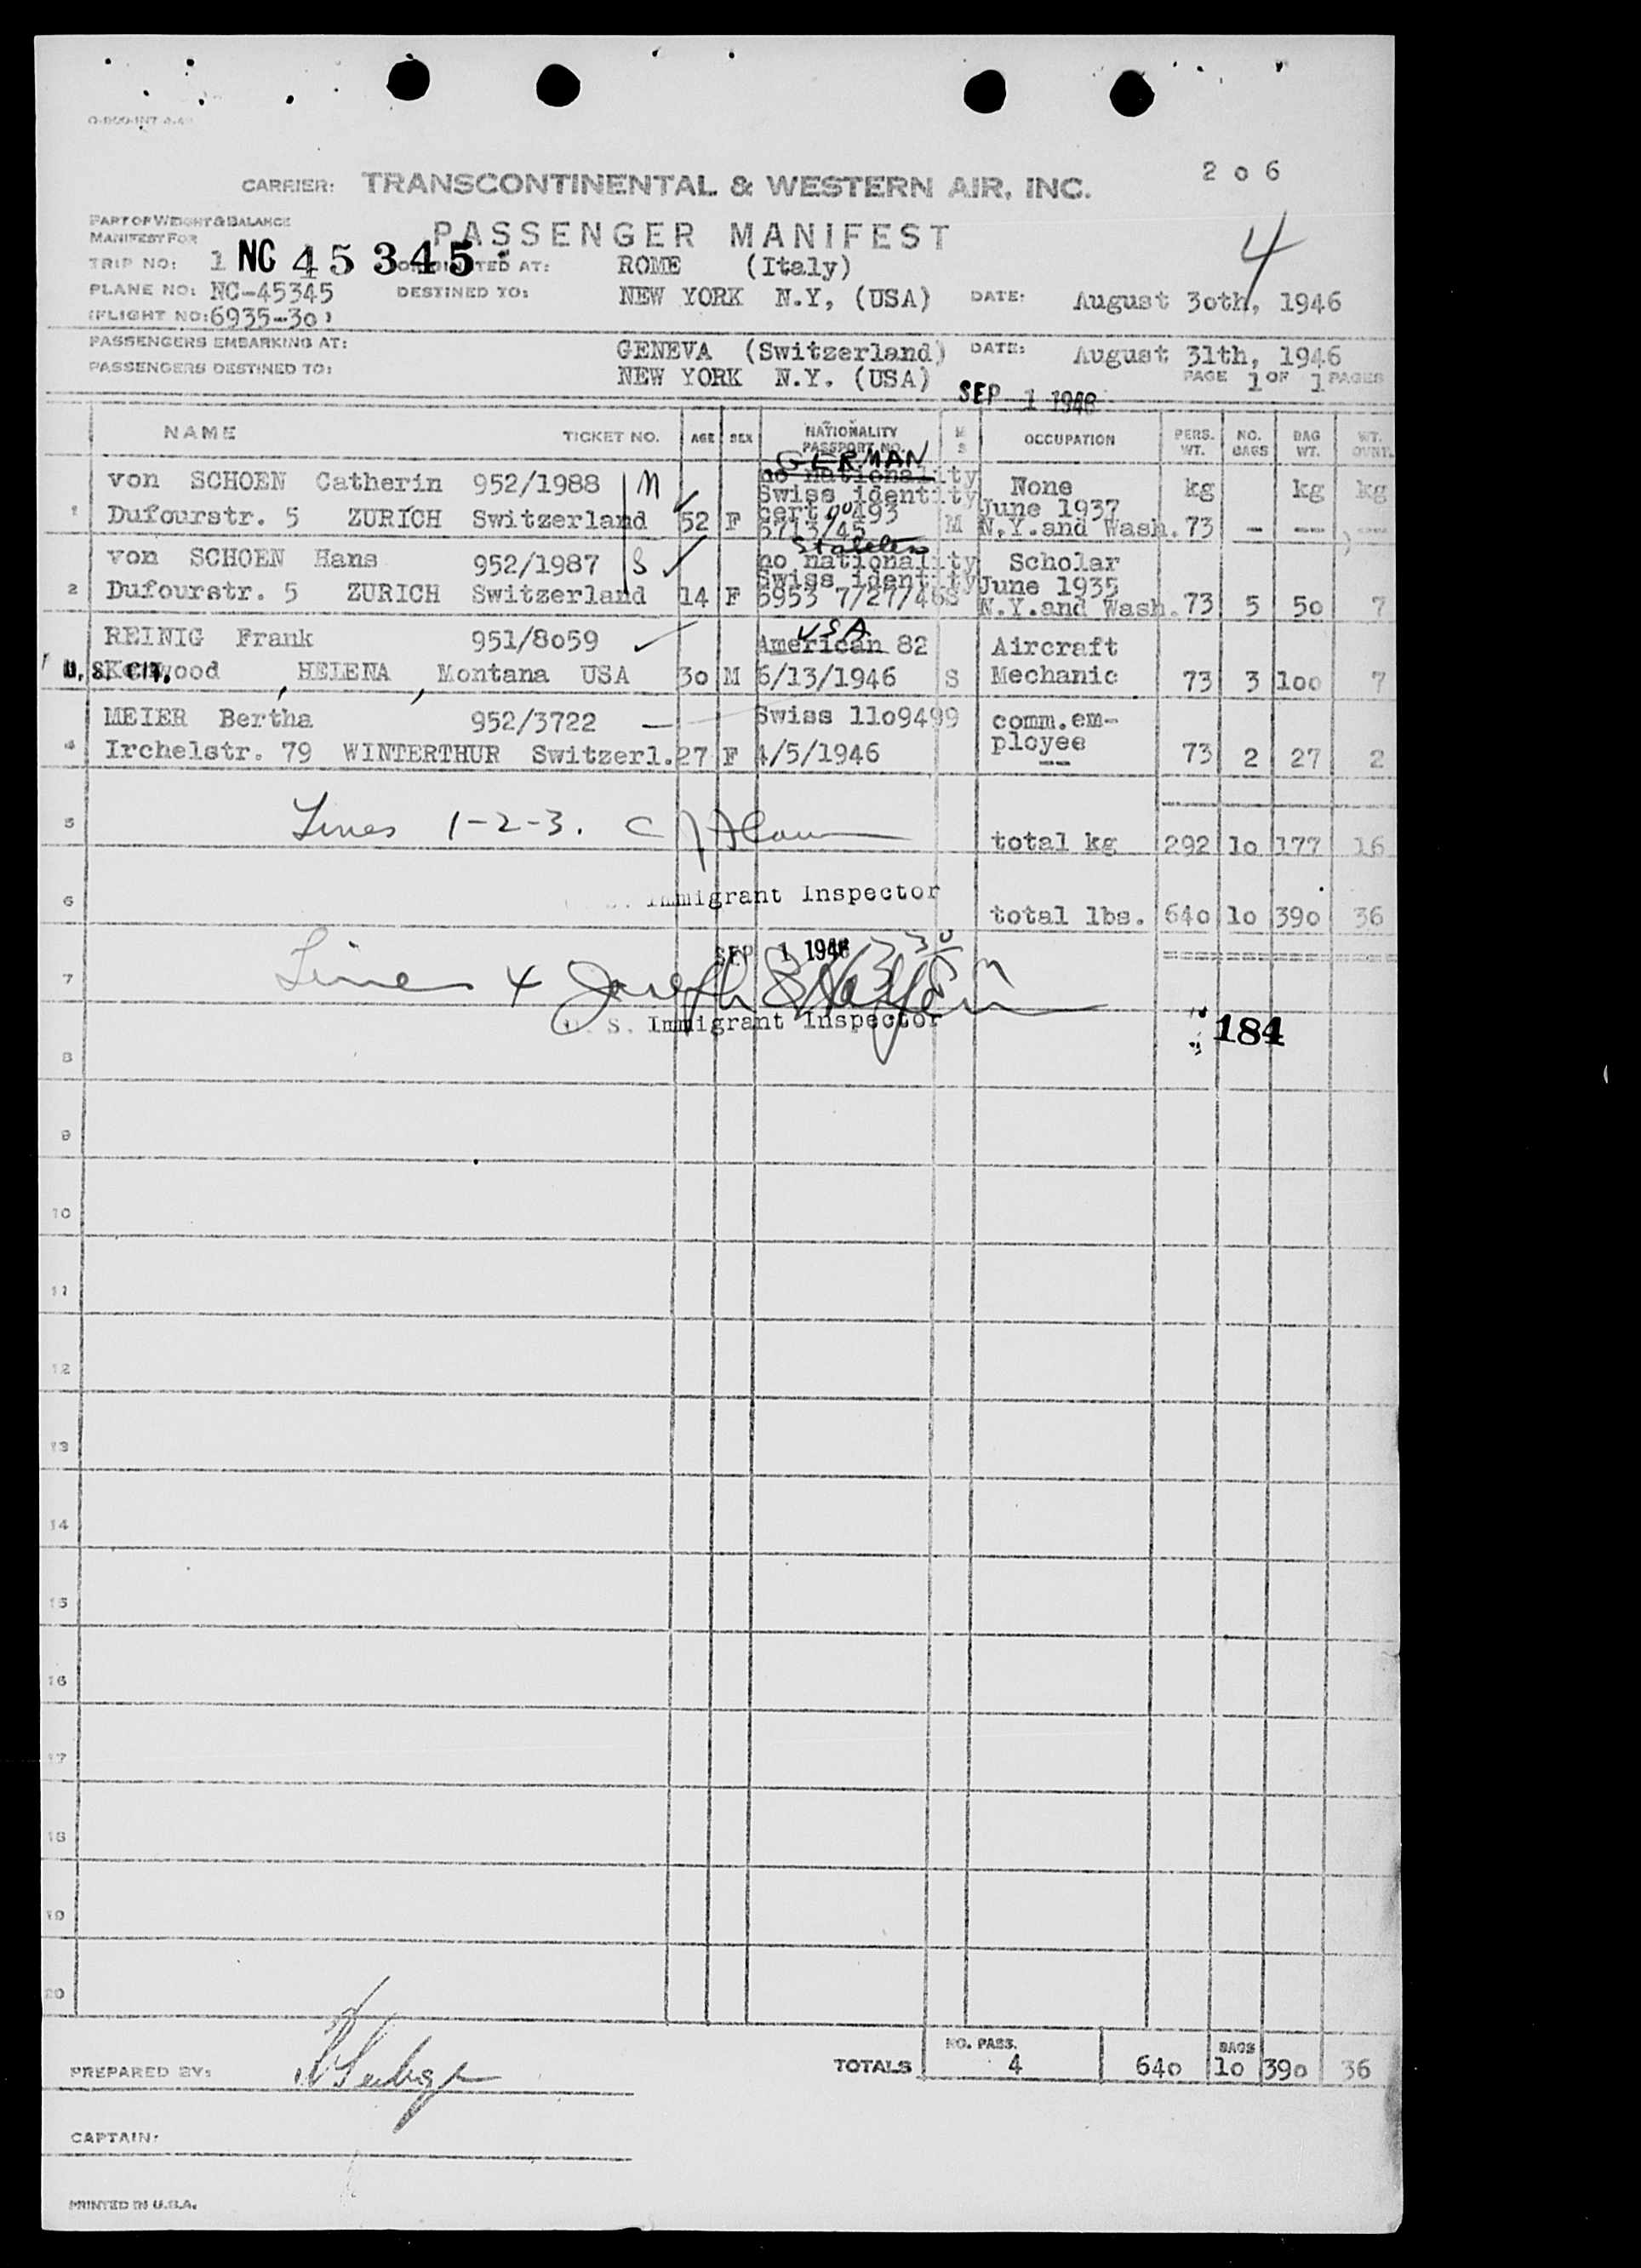 2 o 6
CARRIER: TRANSCONTINENTAL & WESTERN AIR, INC.
PART OF WEIGHT & BALANCE
MANIFEST FOR
PASSENGER MANIFEST
4
TRIP NO: 1 NC 45345 ORIGINATED AT: ROME (Italy)
PLANE NO: NC-45345 DESTINED TO: NEW YORK N.Y, (USA) DATE: August 3oth, 1946
(FLIGHT NO: 6935-3o)
PASSENGERS EMBARKING AT: GENEVA (Switzerland) DATE: August 31th, 1946
PASSENGERS DESTINED TO: NEW YORK N.Y. (USA) PAGE 1 OF 1 PAGES
SEP 1 1946
NAME TICKET NO. AGE SEX NATIONALITY PASSPORT NO. M S OCCUPATION PERS. WT. NO. BAGS BAG WT. WT. OVNT.
GERMAN
von SCHOEN Catherin 952/1988 M no nationality None kg kg kg
Swiss identity June 1937
1 Dufourstr. 5 ZURICH Switzerland 52 F cert 493 M N.Y. and Wash. 73 - --- ---
6713/45
Stateless
von SCHOEN Hans 952/1987 S no nationality Scholar
Swiss identity June 1935
2 Dufourstr. 5 ZURICH Switzerland 14 F 5953 7/27/46 S N.Y. and Wash. 73 5 5o 7
USA
REINIG Frank 951/8o59 American 82 Aircraft
U.S. CIT. HELENA, Montana USA 3o M 6/13/1946 S Mechanic 73 3 1oo 7
MEIER Bertha 952/3722 Swiss 11o9499 comm.em-
4 Irchelstr. 79 WINTERTHUR Switzerl. 27 F 4/5/1946 ployee 73 2 27 2
--
5 Lines 1-2-3. total kg 292 1o 177 16
Immigrant Inspector
6 total lbs. 64o 1o 39o 36
SEP 1 1946
7 Line 4 Joseph
U. S. Immigrant Inspector
184
8
9
10
11
12
13
14
15
16
17
18
19
20
PREPARED BY: TOTALS NO. PASS. 4 64o BAGS 1o 39o 36
CAPTAIN:
PRINTED IN U.S.A.